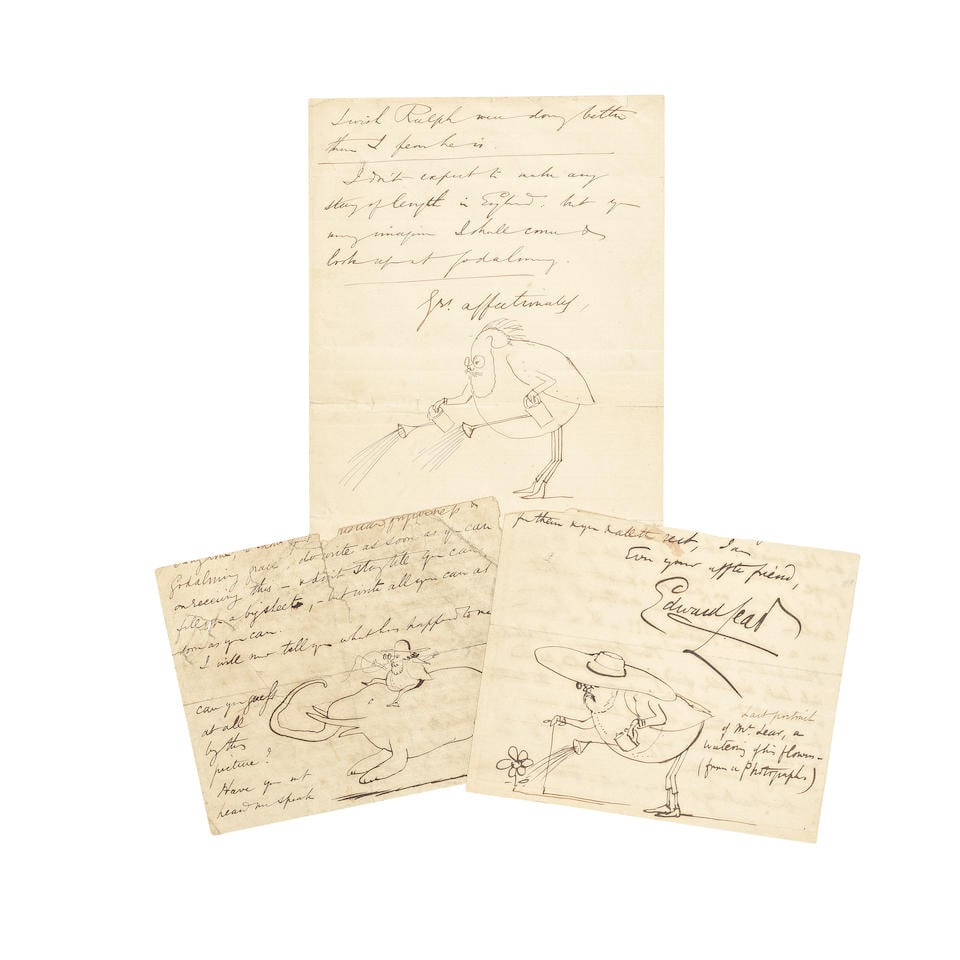 I wish Ralph were doing better
than I fear he is.
I don't expect to make any
stay of length in England: but you
may imagine I shall come &
look up at Godalming.
Yrs. affectionately,
usual forgiveness &
Godalming grace: do write as soon as you can
on receiving this — & don't stay till you can
fill up a big sheet, — but write all you can as
soon as you can.
I will now tell you what has happened to me
can you guess
at all
by this
picture?
Have you not
heard me speak
for them & you & all the rest, I am
Ever your affte friend,
Edward Lear
Last portrait
of Mr. Lear, a
watering of his flowers —
(from a Photograph)